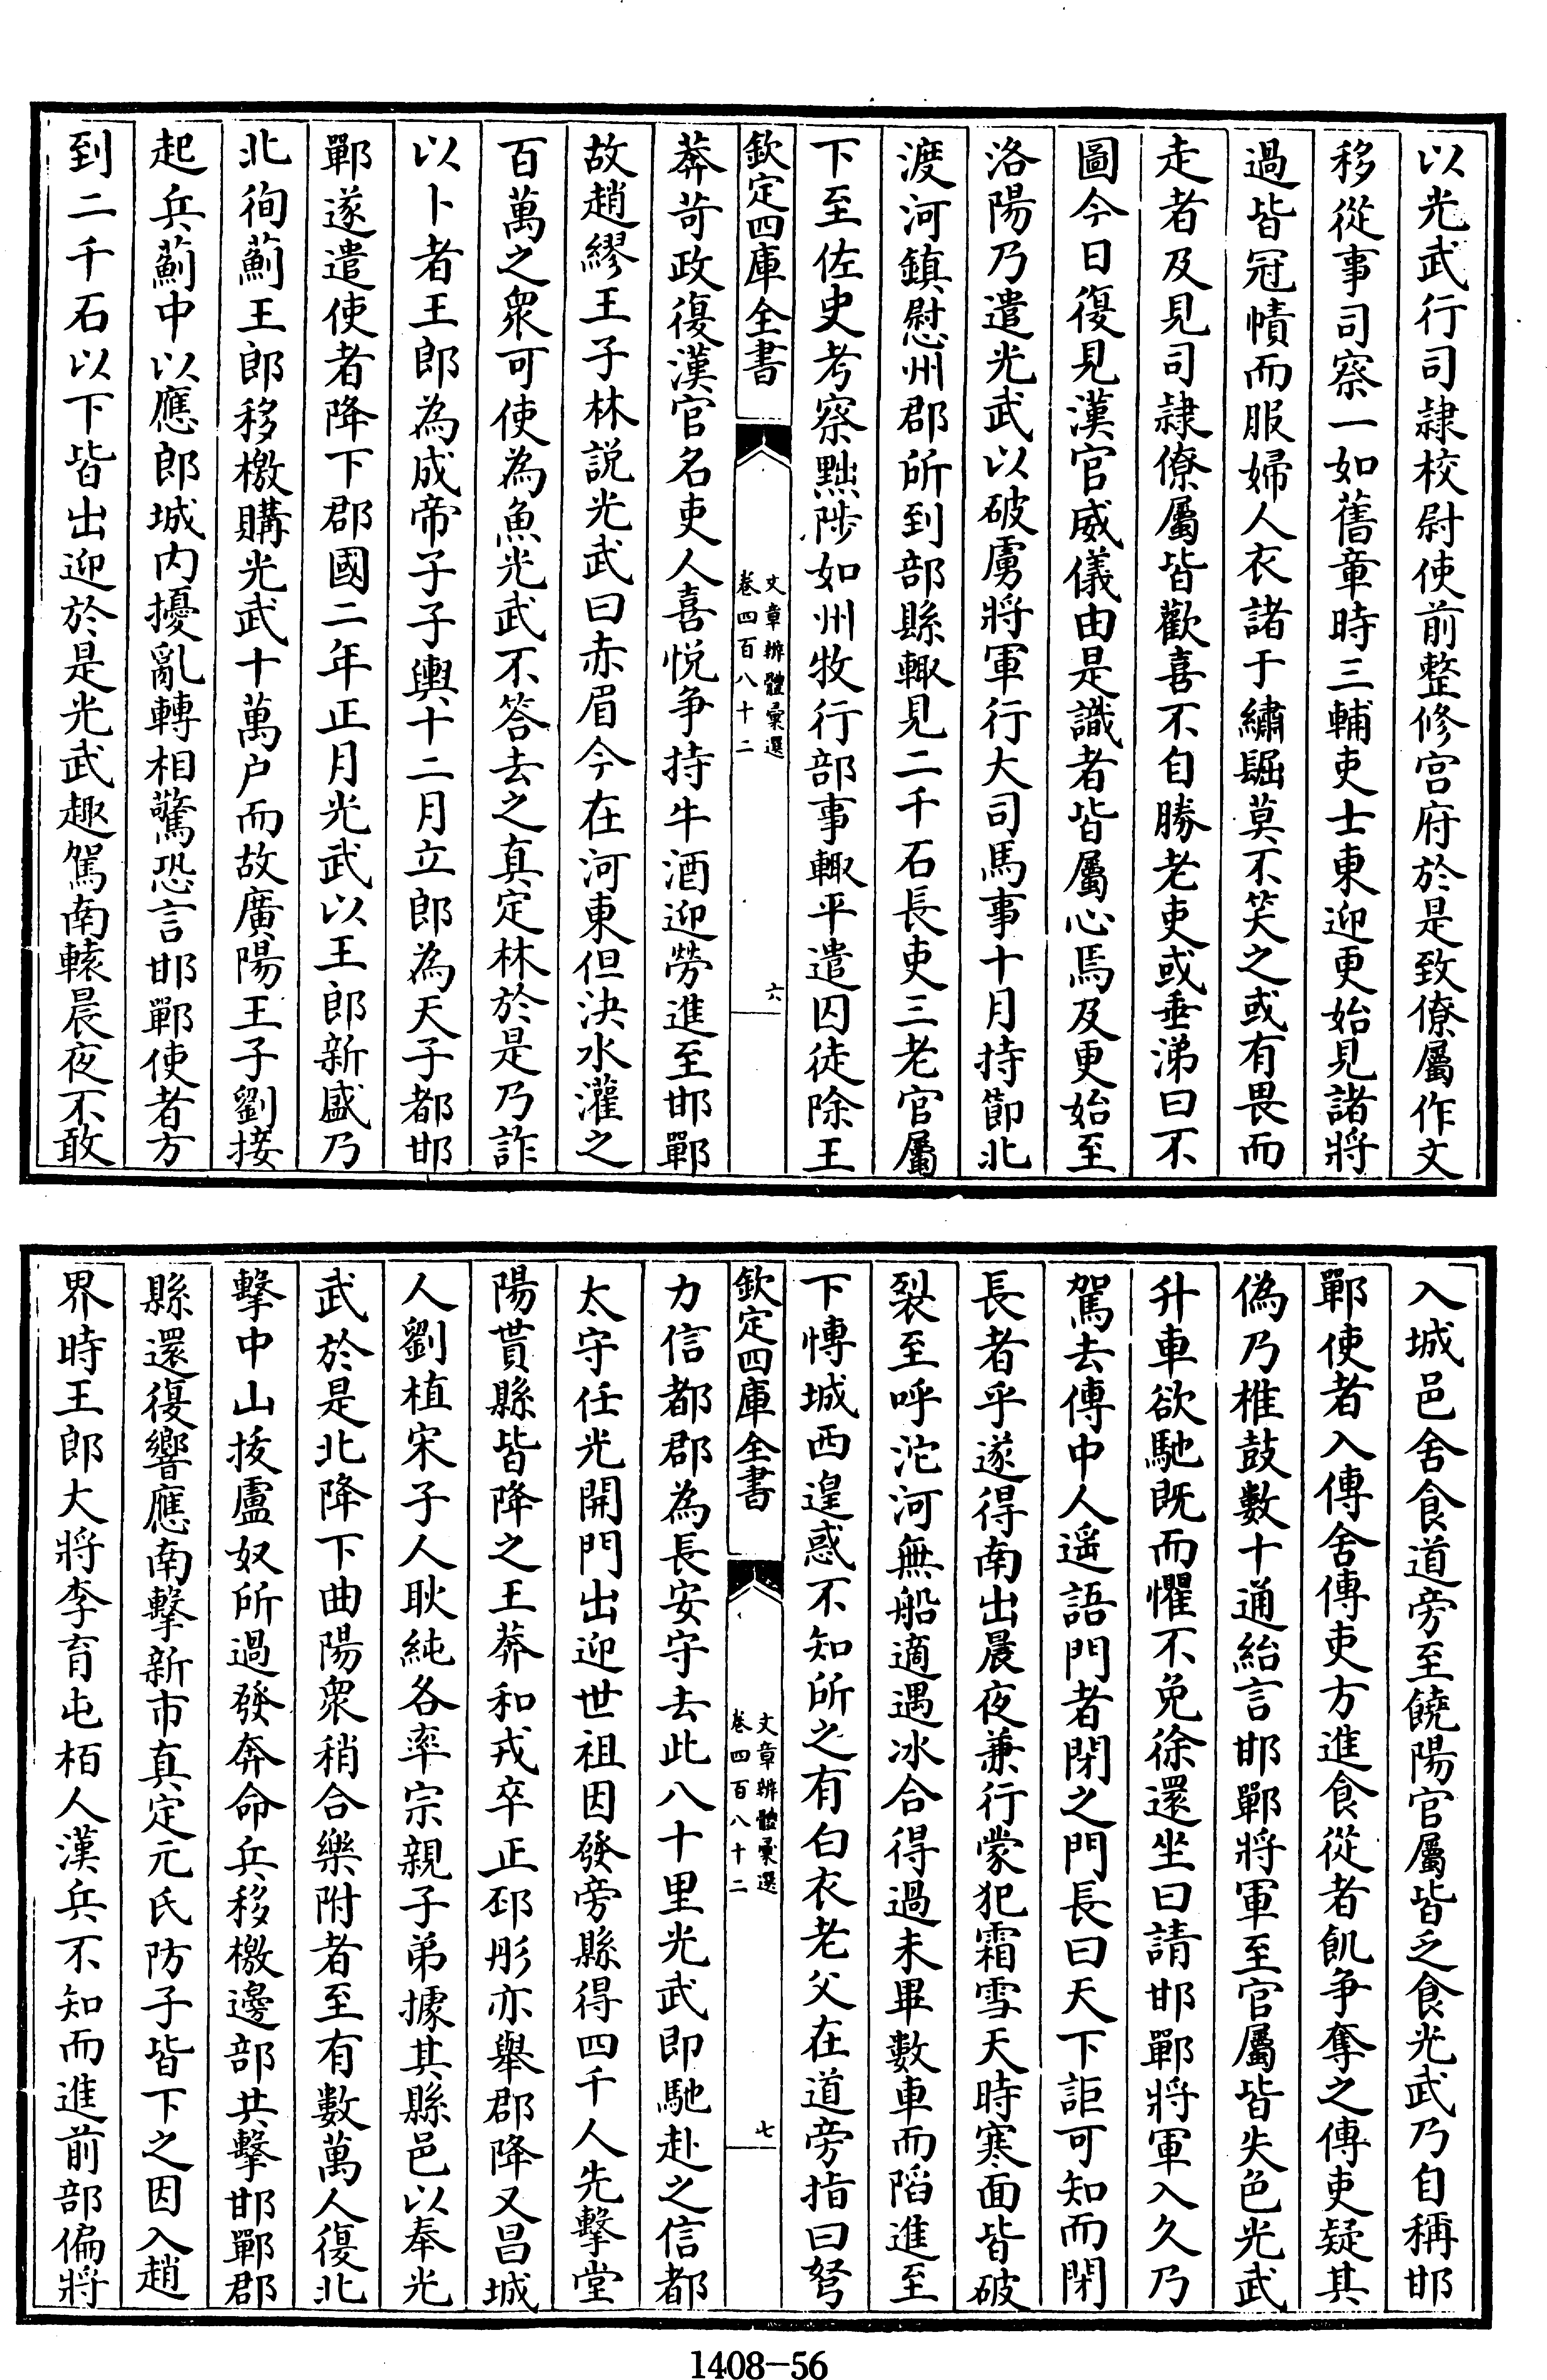 以光武行司隷校尉使前整修宫府於是致僚屬作文
移從事司察一如舊章時三輔吏士東迎更始見諸將
過皆冠幘而服婦人衣諸于繡䘿莫不笑之或有畏而
走者及見司隷僚屬皆歡喜不自勝老吏或垂涕曰不
圖今日復見漢官威儀由是識者皆屬心焉及更始至
洛陽乃遣光武以破虜將軍行大司馬事十月持節北
渡河鎮慰州郡所到部縣輙見二千石長吏三老官屬
下至佐史考察黜陟如州牧行部事輙平遣囚徒除王
欽定四庫全書
文章辨體彙選
卷四百八十二
六
莽苛政復漢官名吏人喜悦争持牛酒迎勞進至邯鄲
故趙繆王子林説光武曰赤眉今在河東但決水灌之
百萬之衆可使為魚光武不答去之真定林於是乃詐
以卜者王郎為成帝子子輿十二月立郎為天子都邯
鄲遂遣使者降下郡國二年正月光武以王郎新盛乃
北徇薊王郎移檄購光武十萬户而故廣陽王子劉接
起兵薊中以應郎城内擾亂轉相驚恐言邯鄲使者方
到二千石以下皆出迎於是光武趣駕南轅晨夜不敢
入城邑舍食道旁至饒陽官屬皆乏食光武乃自稱邯
鄲使者入傳舍傳吏方進食從者飢争奪之傳吏疑其
偽乃椎鼓數十通紿言邯鄲將軍至官屬皆失色光武
升車欲馳既而懼不免徐還坐曰請邯鄲將軍入久乃
駕去傳中人遥語門者閉之門長曰天下詎可知而閉
長者乎遂得南出晨夜兼行蒙犯霜雪天時寒面皆破
裂至呼沱河無船適遇冰合得過未畢數車而䧟進至
下博城西遑惑不知所之有白衣老父在道旁指曰努
欽定四庫全書
文章辨體彙選
卷四百八十二
七
力信都郡為長安守去此八十里光武即馳赴之信都
太守任光開門出迎世祖因發旁縣得四千人先擊堂
陽貰縣皆降之王莽和戎卒正邳彤亦舉郡降又昌城
人劉植宋子人耿純各率宗親子弟據其縣邑以奉光
武於是北降下曲陽衆稍合樂附者至有數萬人復北
擊中山拔盧奴所過發奔命兵移檄邊部共擊邯鄲郡
縣還復響應南擊新市真定元氏防子皆下之因入趙
界時王郎大將李育屯栢人漢兵不知而進前部偏將
1408-56